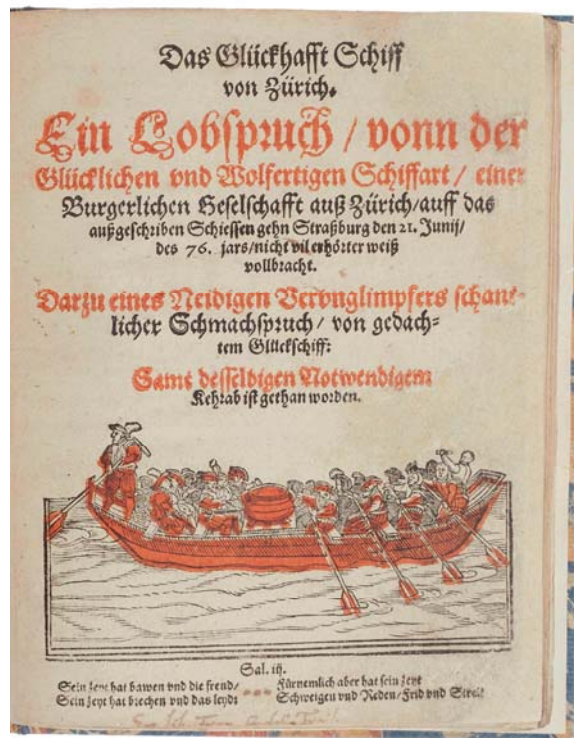 Das Glückhafft Schiff
von Zürich.
Ein Lobspruch / vonn der
Glücklichen vnd Wolfertigen Schiffart / einer
Burgerlichen Geselschafft auß Zürich/auff das
außgeschriben Schiessen gehn Straßburg den 21. Junij/
des 76. jars/nicht vil erhörter weiß
vollbracht.
Darzu eines Neidigen Verunglimpfers schant-
licher Schmachspruch/ von gedach-
tem Glückschiff:
Samt desselbigen Notwendigem
Kehrab ist gethan worden.
Sal. iij.
Sein zeyt hat bawen vnd die freud/
Sein zeyt hat brechen vnd das leyd:
Fürnemlich aber hat sein zeyt
Schweigen vnd Reden/Frid vnd Streit